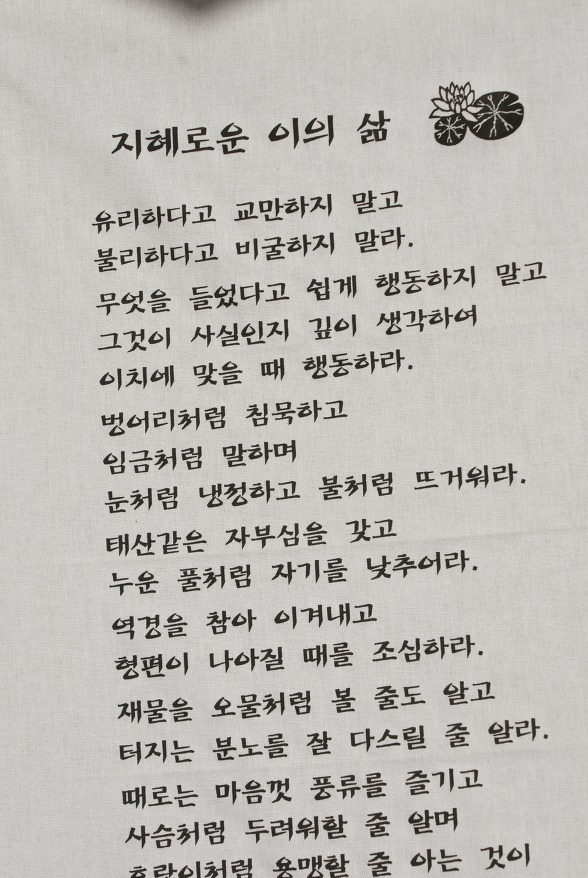 지혜로운 이의 삶
유리하다고 교만하지 말고
불리하다고 비굴하지 말라.
무엇을 들었다고 쉽게 행동하지 말고
그것이 사실인지 깊이 생각하여
이치에 맞을 때 행동하라.
벙어리처럼 침묵하고
임금처럼 말하며
눈처럼 냉정하고 불처럼 뜨거워라.
태산같은 자부심을 갖고
누운 풀처럼 자기를 낮추어라.
역경을 참아 이겨내고
형편이 나아질 때를 조심하라.
재물을 오물처럼 볼 줄도 알고
터지는 분노를 잘 다스릴 줄 알라.
때로는 마음껏 풍류를 즐기고
사슴처럼 두려워할 줄 알며
호랑이처럼 용맹할 줄 아는 것이